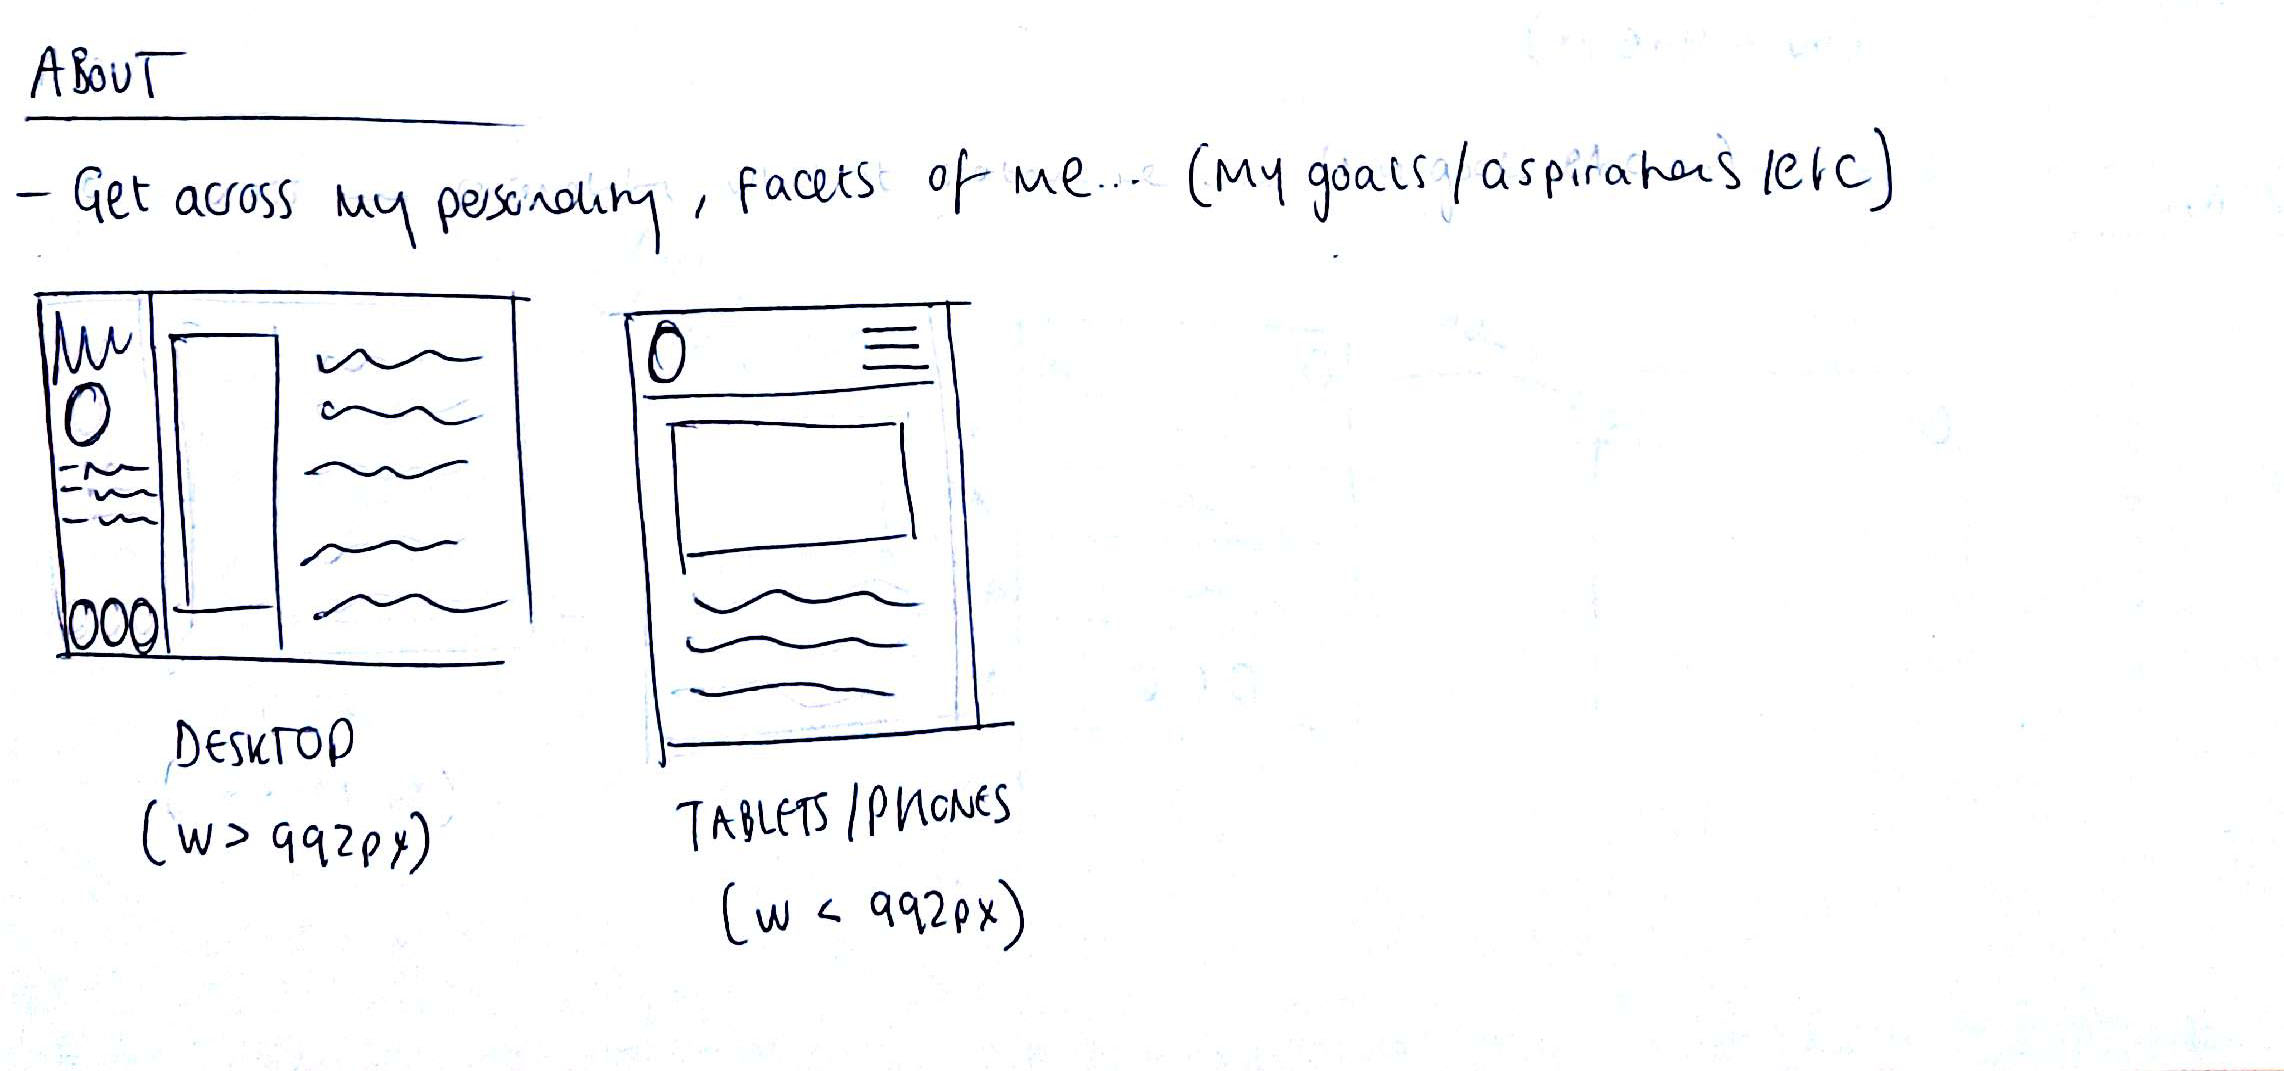 ABOUT
- Get across my personality, facets of me... (My goals/aspirations/etc)
DESKTOP
(w > 992px)
TABLETS/PHONES
(w < 992px)